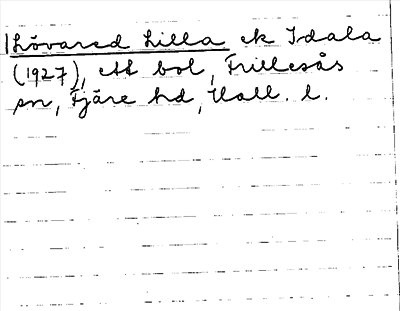 Lövared Lilla ek Idala
(1927), ett bol, Frillesås
sn, Fjäre hd, Hall. l.